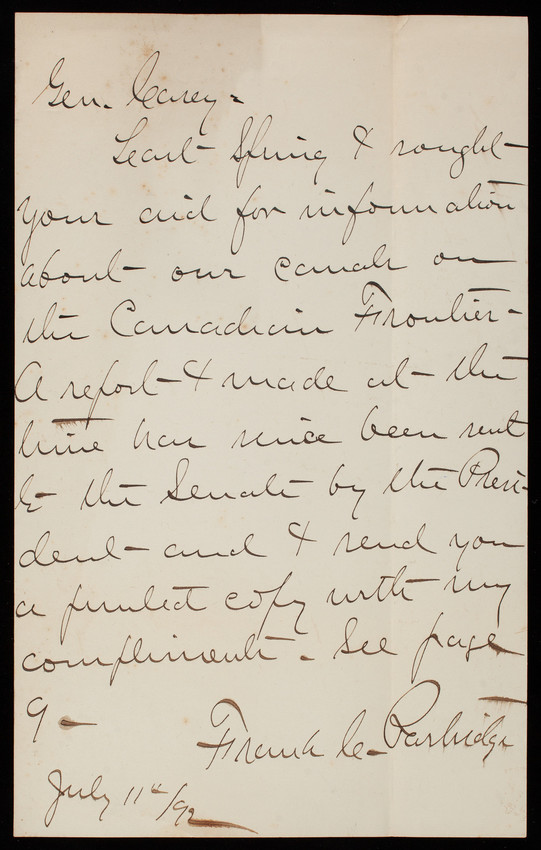 Gen. Casey -
Last Spring I sought
your aid for information
about our canals on
the Canadian Frontier -
A report I made at the
time has since been sent
to the Senate by the Presi-
dent and I send you
a printed copy with my
compliments. See page
9 -
Frank C. Partridge
July 11"/92